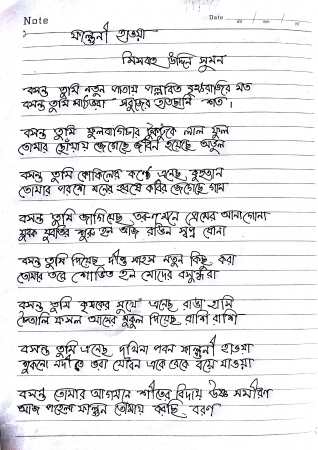 Note
Date
ফাল্গুনী হাওয়া
মিসবাহ উদ্দিন সুমন
বসন্ত তুমি নতুন পাতায় পল্লবিত বৃক্ষরাজির মত
বসন্ত তুমি মাঠভরা সবুজের হাতছানি শত ।
বসন্ত তুমি ফুলবাগিচার টুকটুকে লাল ফুল
তোমার ছোঁয়ায় জেগেছে জীবন হয়েছে অতুল
বসন্ত তুমি কোকিলের কন্ঠে এনেছ কুহুতান
তোমার পরশে মনের হরষে কবির জেগেছে গান
বসন্ত তুমি জাগিয়েছ তরুণ মনে প্রেমের আনাগোনা
যুবক যুবতির শুরু হল আজ রঙিন স্বপ্ন বোনা
বসন্ত তুমি দিয়েছ দীপ্ত সাহস নতুন কিছু করা
তোমার তরে শোভিত হল মোদের বসুন্ধরা
বসন্ত তুমি কৃষকের মুখে এনেছ রাঙা হাসি
চৈতালি ফসল আমের মুকুল দিয়েছ রাশি রাশি
বসন্ত তুমি এনেছ দখিনা পবন ফাল্গুনী হাওয়া
শুকনো নদী ভরা যৌবন একে বেকে বয়ে যাওয়া
বসন্ত তোমার আগমনে শীতের বিদায় উষ্ণ সমীরণ
আজ পহেলা ফাল্গুন তোমায় করছি বরণ